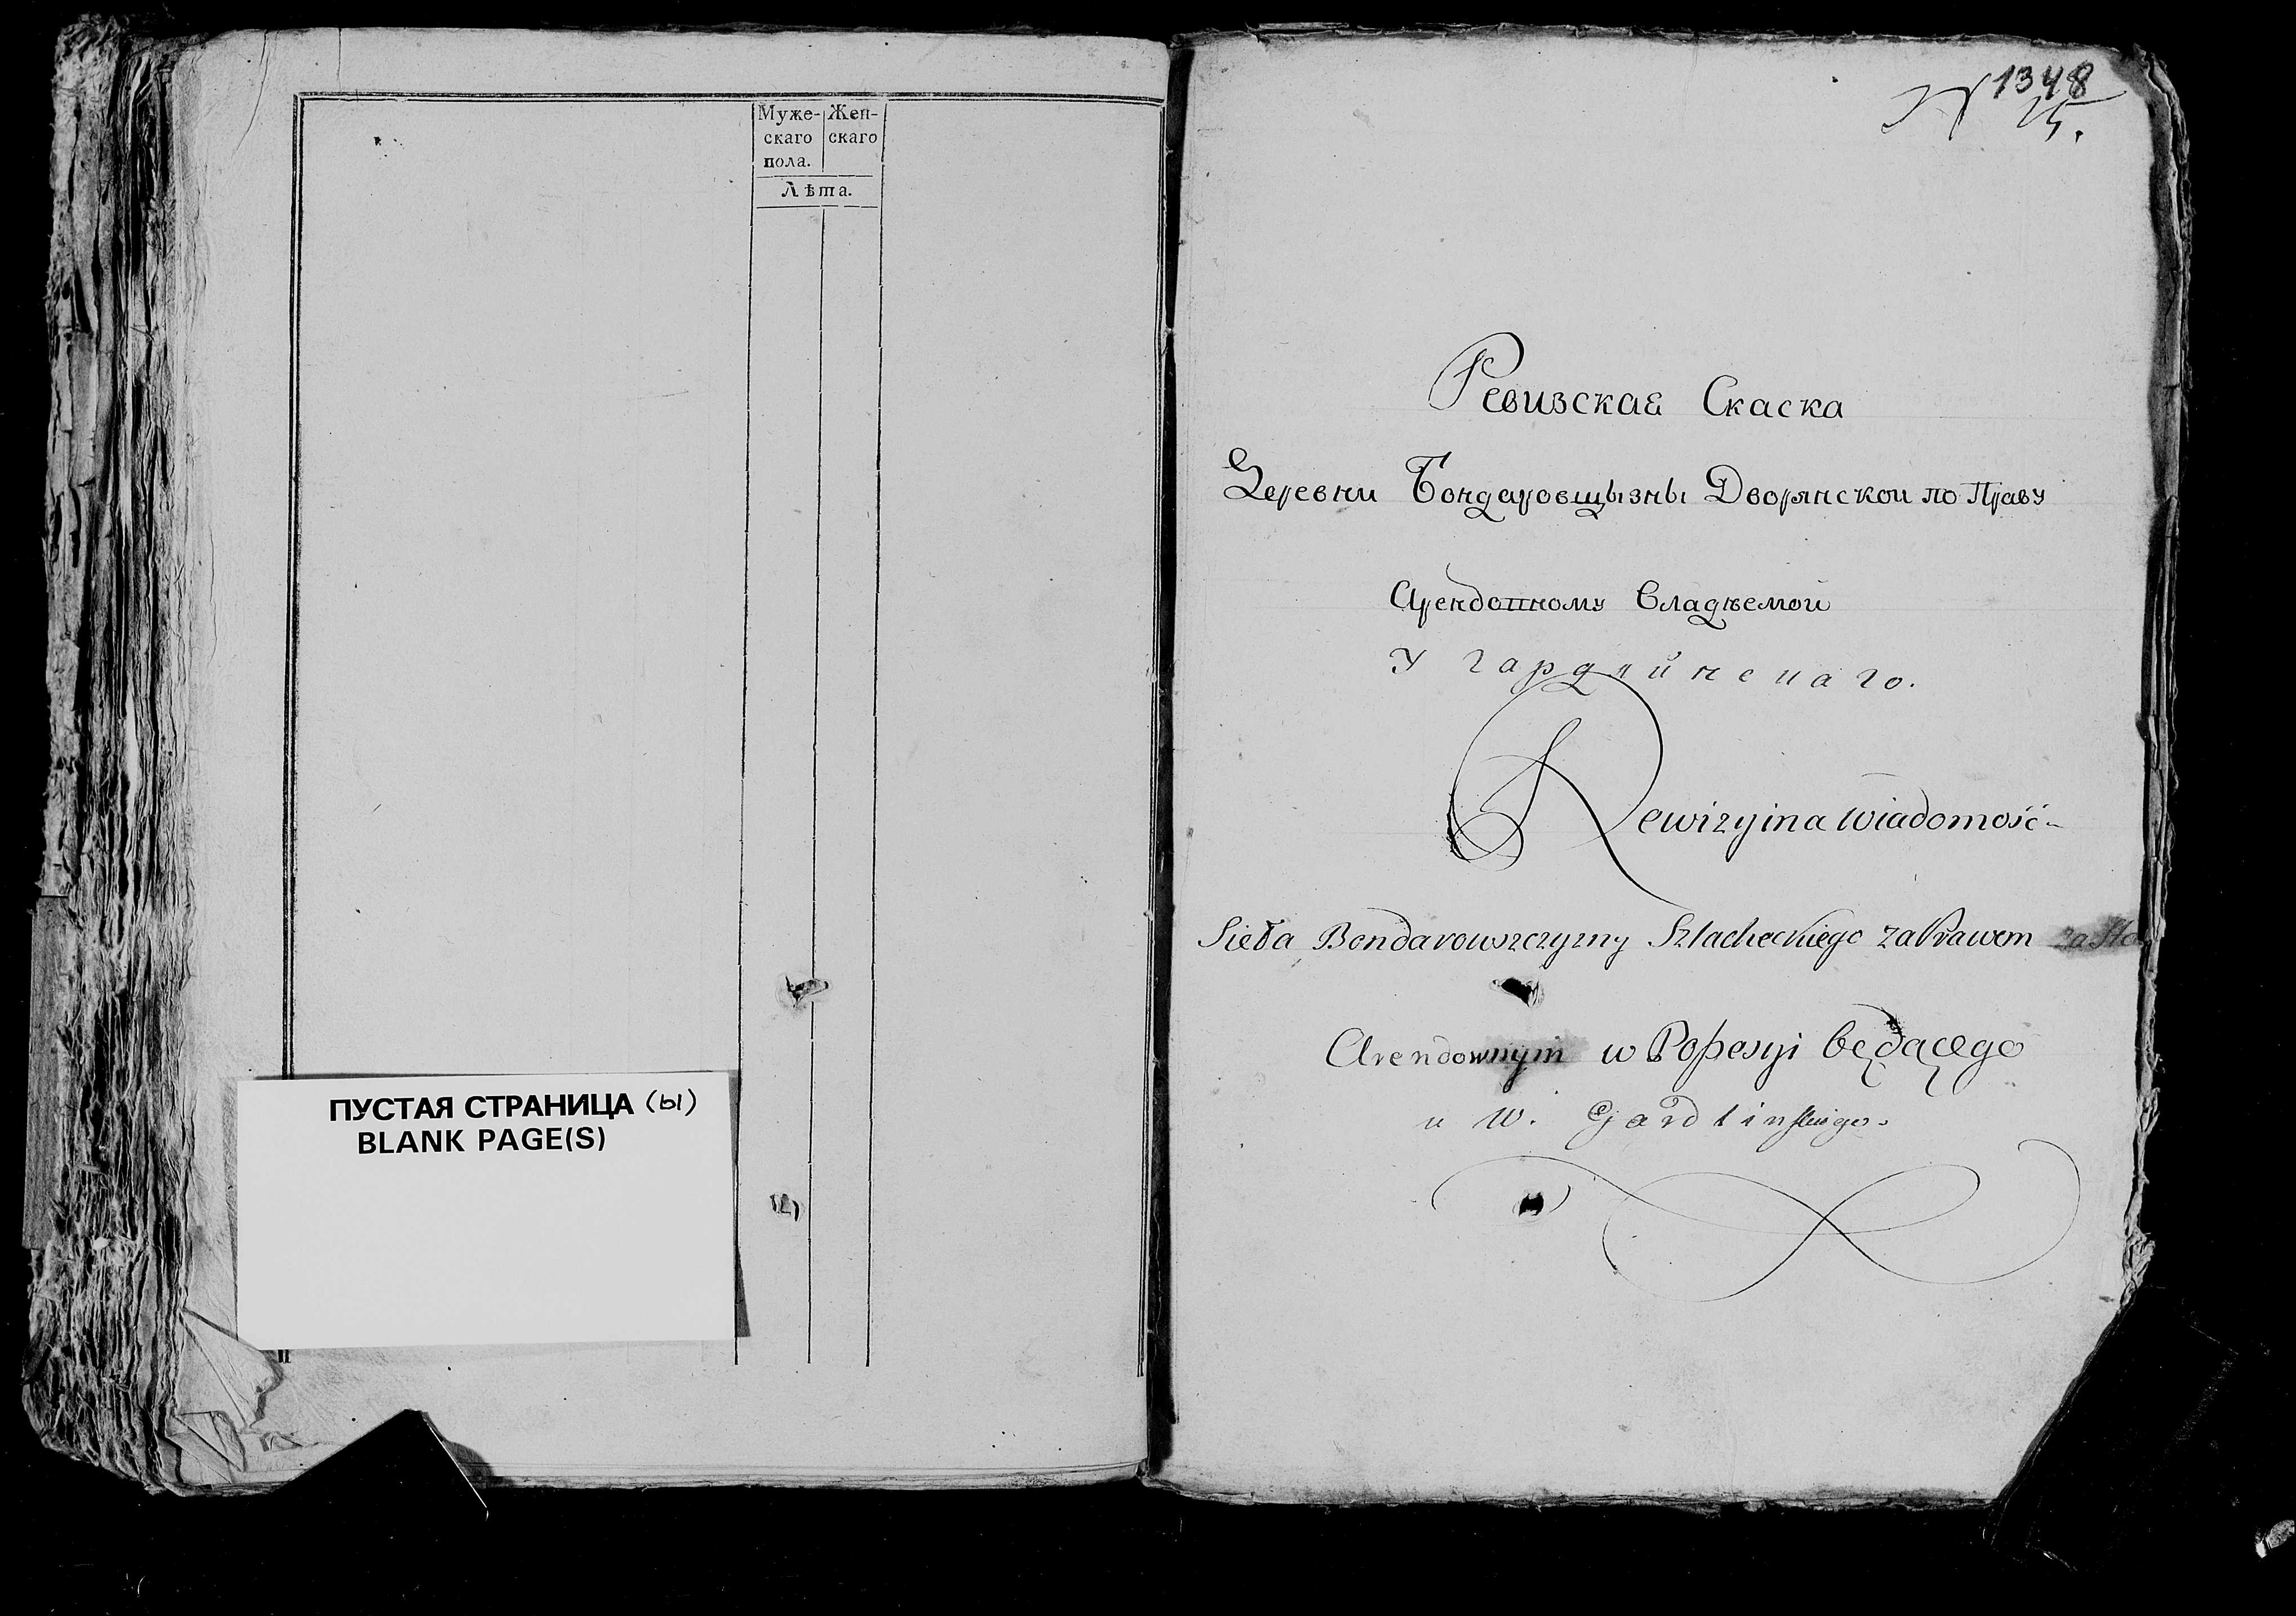 Муже- Жен-
скаго скаго
пола.
Лѣта.
ПУСТАЯ СТРАНИЦА (ы)
BLANK PAGE(S)
N 1348
15.
Ревизская Скаска
Деревни Бондаровщызны Дворянской по Праву
Арендовному Владѣемой
У
Rewizyina Wiadomość
Sioła Bondarowszczyzny Szlacheckiego za Prawem
Arendownym w Possesyi będącego
u W.